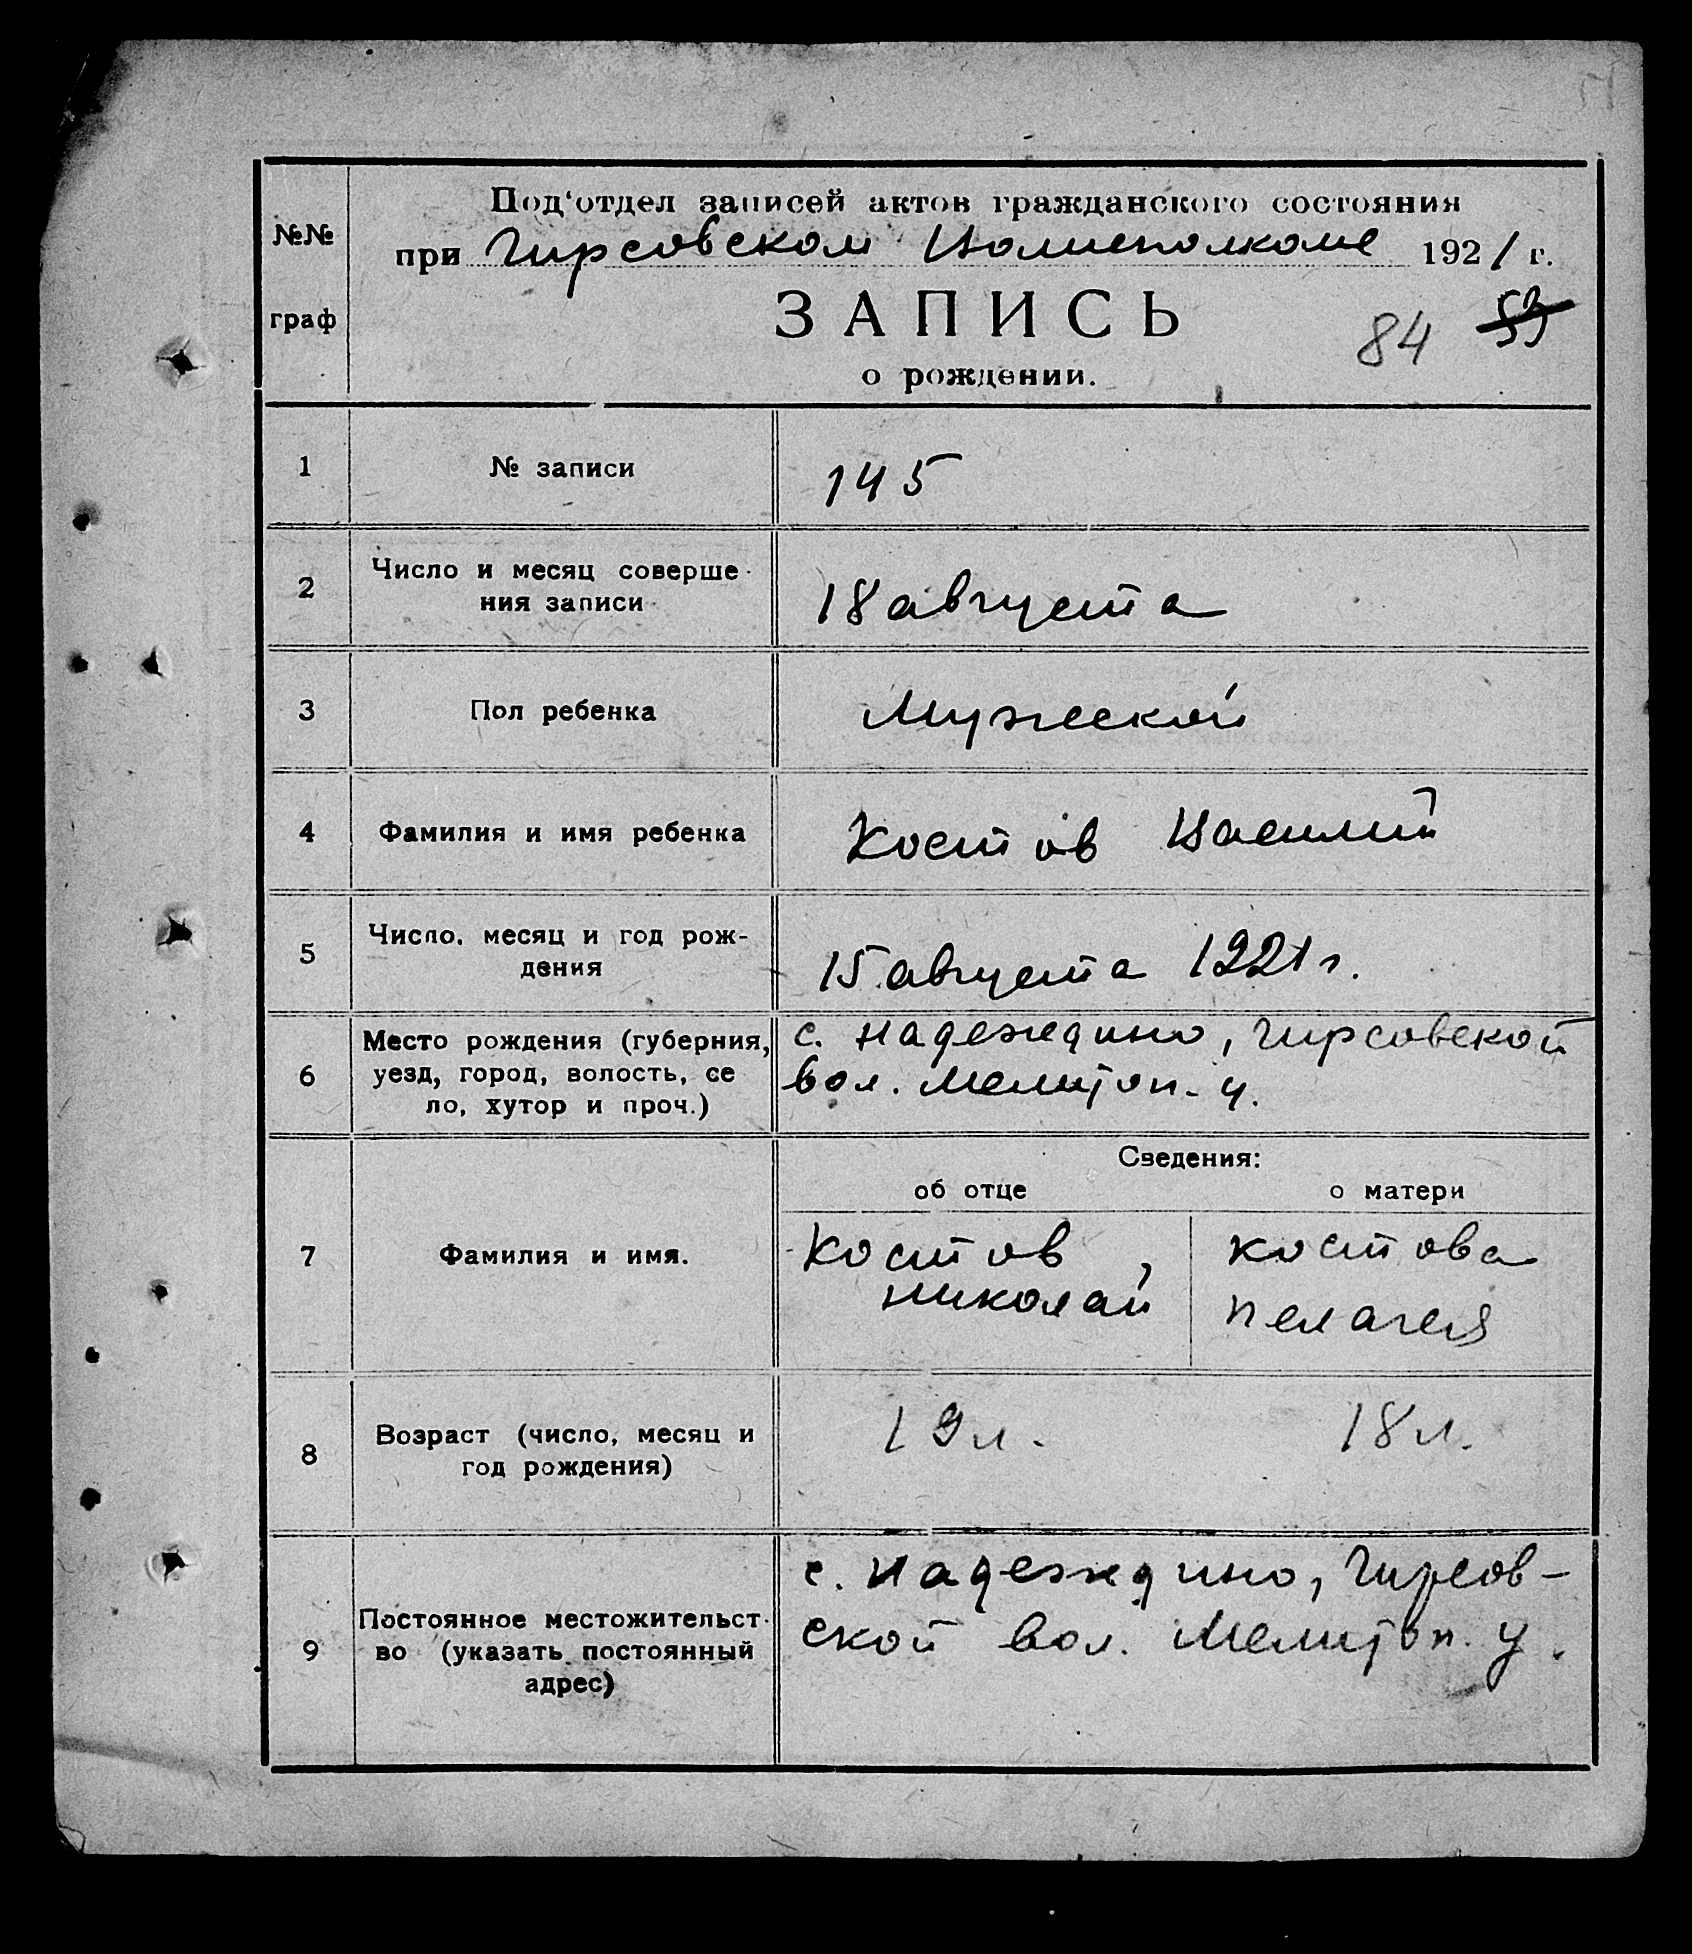 №№
граф
Под'отдел записей актов гражданского состояния
при Гирсовском Волисполкоме 1921 г.
ЗАПИСЬ
84 53
о рождении.
1 № записи 145
2 Число и месяц соверше-
ния записи 18 августа
3 Пол ребенка Мужской
4 Фамилия и имя ребенка Костов Василий
5 Число, месяц и год рож-
дения 15 августа 1921 г.
6 Место рождения (губерния,
уезд, город, волость, се
ло, хутор и проч.)
с. Надеждино, Гирсовской
вол. Мелитоп. у.
Сведения:
об отце о матери
7 Фамилия и имя.
Костов,
Николай
Костова
Пелагея
8 Возраст (число, месяц и
год рождения)
19 л. 18 л.
9 Постоянное местожительст-
во (указать постоянный
адрес)
с. Надеждино, Гирсов-
ской вол. Мелитоп. у.